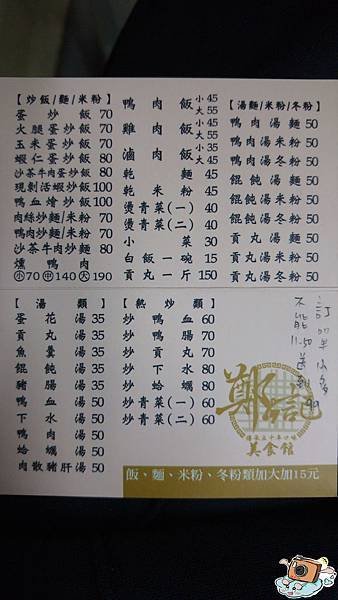 【炒飯/麵/米粉】
蛋炒飯 70
火腿蛋炒飯 70
玉米蛋炒飯 70
蝦仁蛋炒飯 80
沙茶牛肉蛋炒飯 80
現剝活蝦炒飯 100
鴨血燴炒飯 100
肉絲炒麵/米粉 70
鴨肉炒麵/米粉 70
沙茶牛肉炒麵 80
燻鴨肉
小70 中140 大190
鴨肉飯 小45 大55
雞肉飯 小45 大55
滷肉飯 小35 大45
乾麵 45
乾米粉 45
燙青菜(一) 40
燙青菜(二) 40
小菜 30
白飯一碗 15
貢丸一斤 150
【湯麵/米粉/冬粉】
鴨肉湯麵 50
鴨肉湯米粉 50
鴨肉湯冬粉 50
餛飩湯麵 50
餛飩湯米粉 50
餛飩湯冬粉 50
貢丸湯麵 50
貢丸湯米粉 50
貢丸湯冬粉 50
【湯類】
蛋花湯 35
貢丸湯 35
魚羹湯 35
餛飩湯 35
豬腸湯 35
鴨血湯 50
下水湯 50
鴨肉湯 50
蛤蠣湯 50
肉散豬肝湯 50
【熱炒類】
炒鴨血 60
炒鴨腸 70
炒貢丸 70
炒下水 80
炒蛤蠣 80
炒青菜(一) 60
炒青菜(二) 60
鄭記
美食館
飯、麵、米粉、冬粉類加大加15元